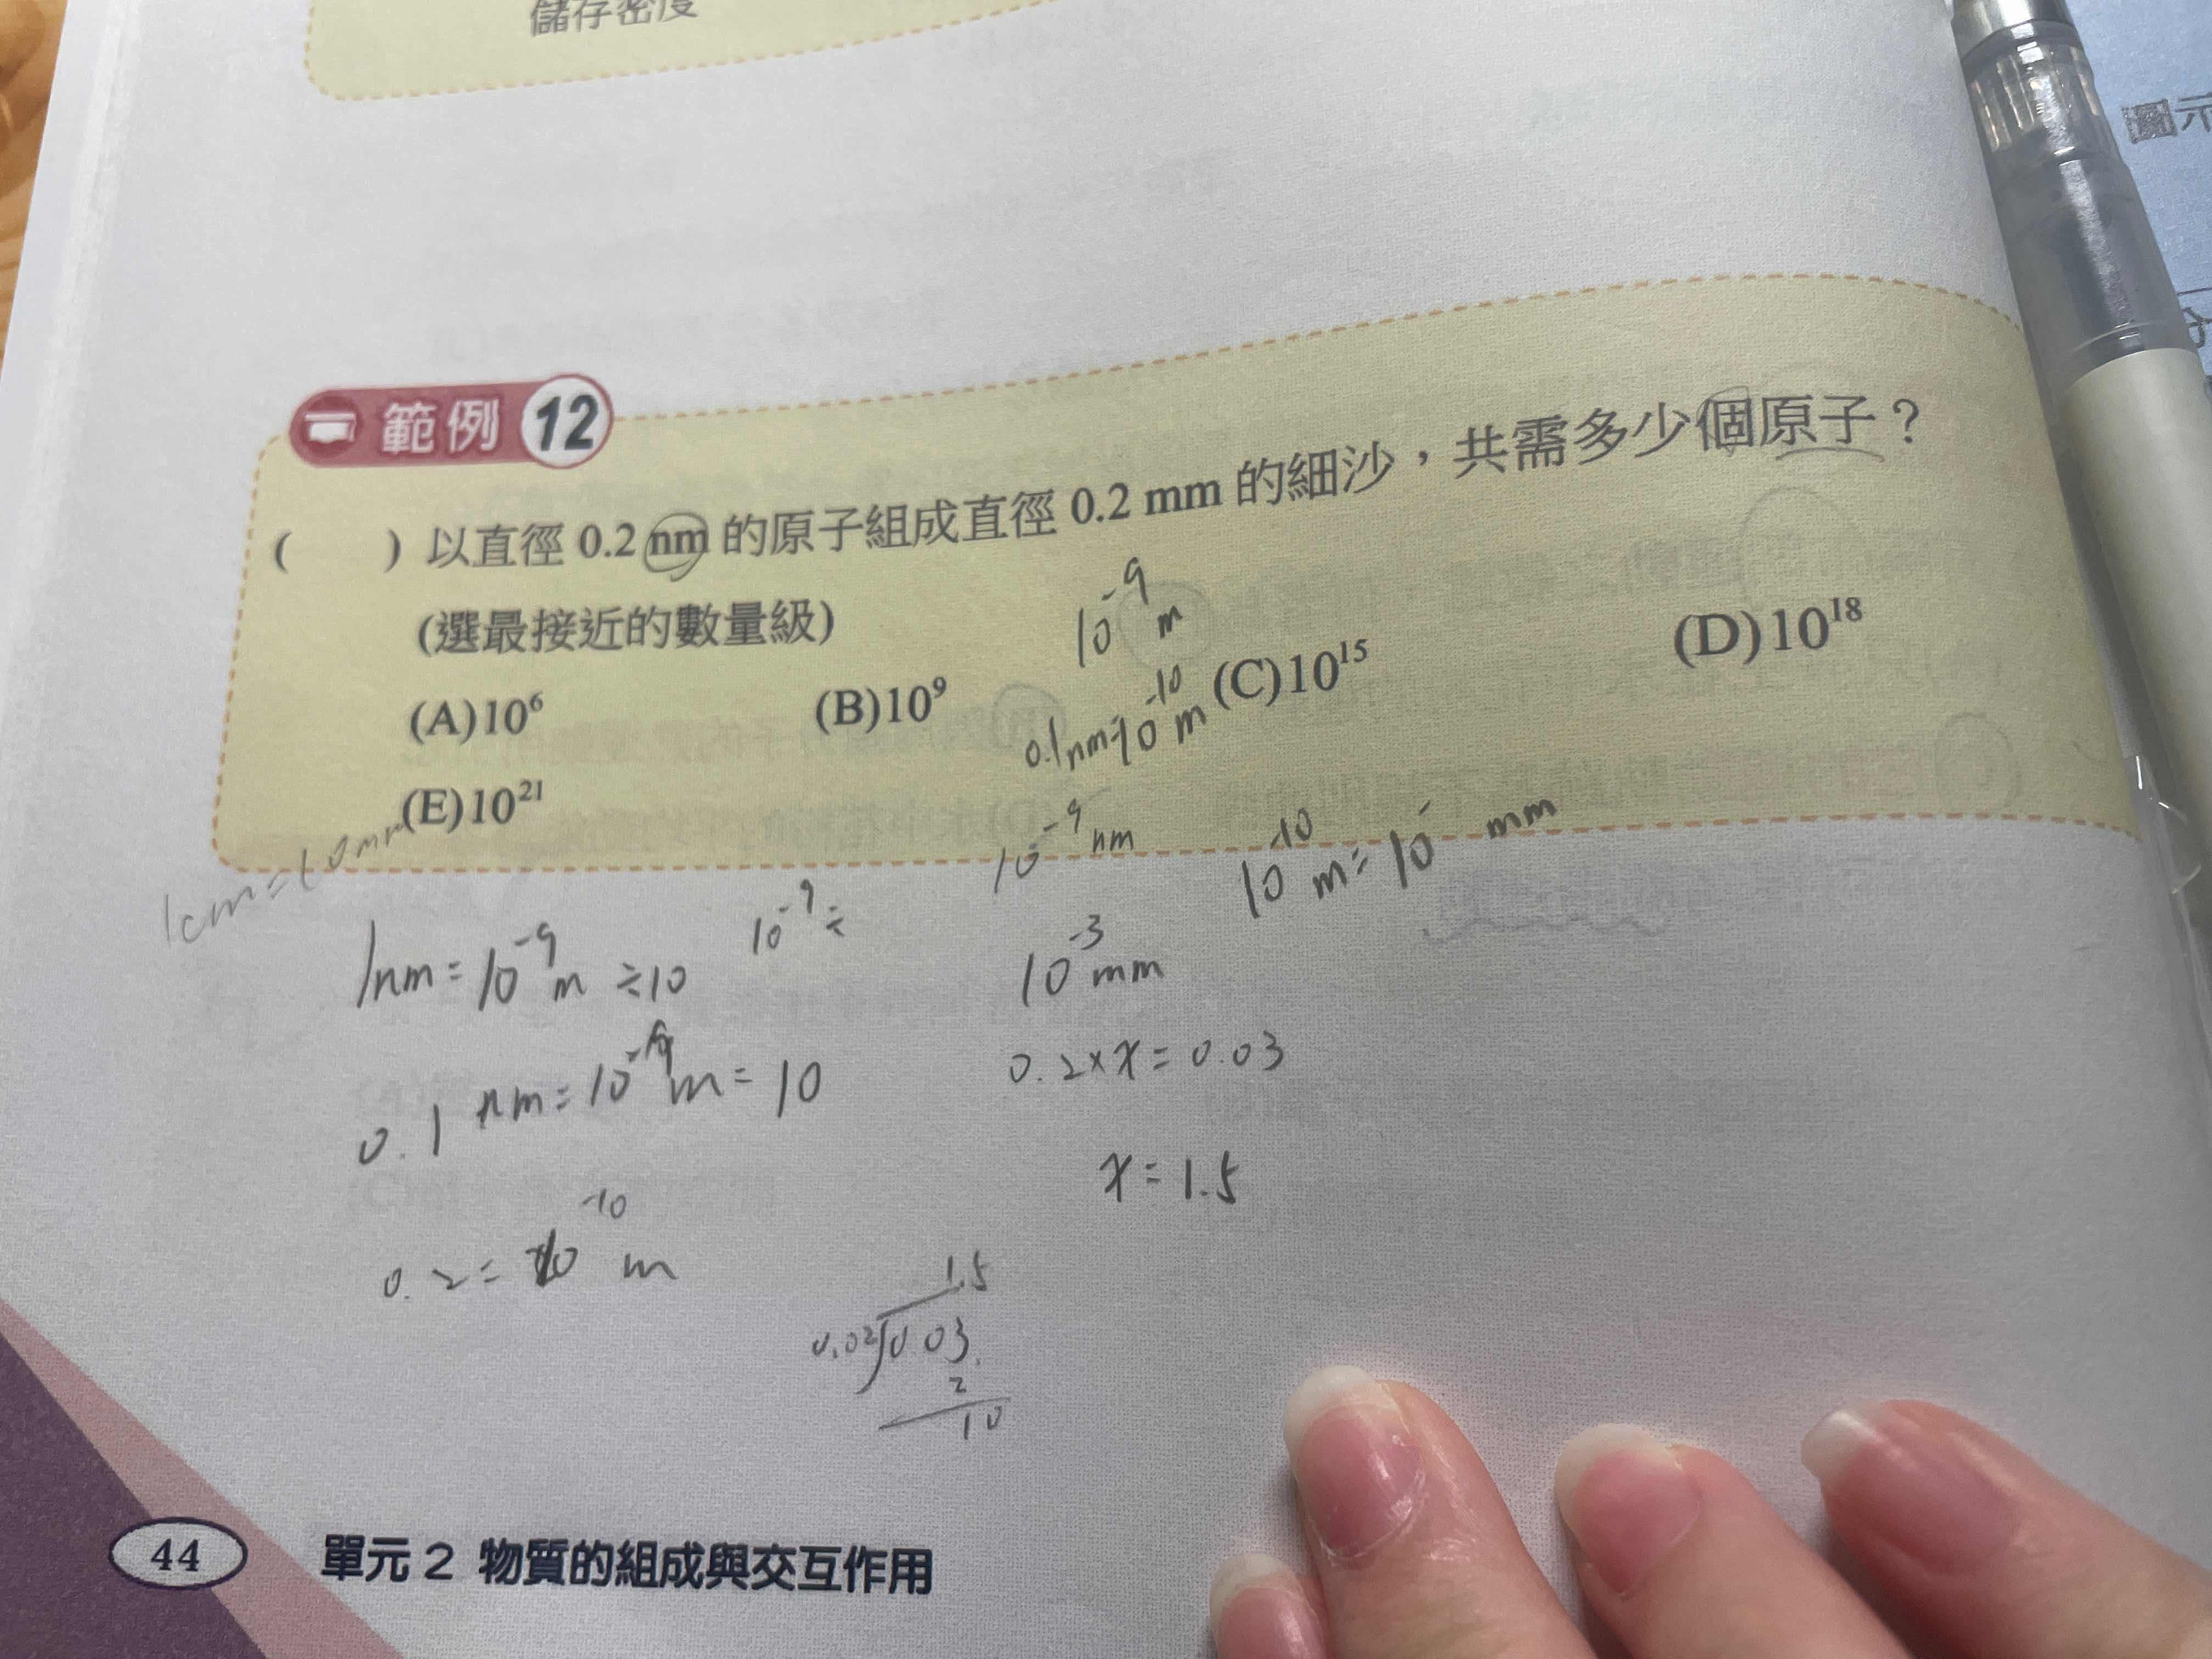 儲存密度
範例 12
( ) 以直徑 0.2 nm 的原子組成直徑 0.2 mm 的細沙，共需多少個原子？
(選最接近的數量級)
10⁻⁹ m
(A)10⁶ (B)10⁹ (C)10¹⁵ (D)10¹⁸
0.1nm=10⁻¹⁰ m
(E)10²¹
1cm=10mm
10⁻⁹ nm
10⁻¹⁰ m= 10⁻ mm
1nm = 10⁻⁹ m ÷10
10⁻⁹ ÷
10⁻³ mm
0.1 nm= m= 10
0.2×x = 0.03
x = 1.5
0.2 = 10⁻¹⁰ m
1.5
0.02 0.03
2
10
44 單元 2 物質的組成與交互作用
示